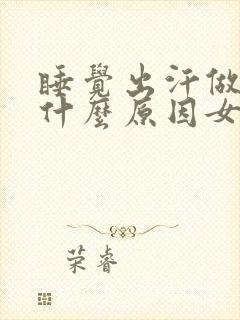 睡覺出汗做
什麼原因女
荣睿